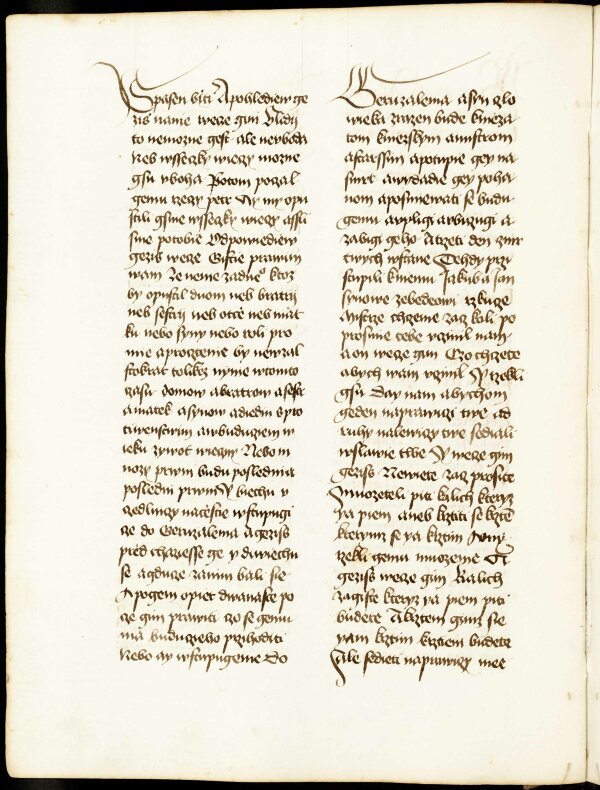 Spasen biti Apohlediew ge
zis nanie wece gim Vlidij
to nemozne gest ale nevboha
Neb wsseczky wieczy mozne
gsu vboha Potom poczal
gemu rzeczy petr Ay my opu
stili gsme wsseczky wieczy assli
sme potobie Odpowiediew
gezis wece Giste prawim
wam Ze neme zadneho ktoz
by opustil duom neb bratrzij
neb sestry neb otce neb mat
ku nebo syny nebo roli pro
mie aproczteme by newzal
stokrat tolikez nynie wtomto
czasu domow abratrow asestr
amatek asynow adiedin spto
tiwenstwim awbuduczem w
ieku zywot wieczny Nebo m
nozy prwni budu poslednii
posledni prwni Y biechu v
cedlniczy nacestie wstupugi
cze do Geruzalema agezis
przed chaziesse ge y diwiechu
se agducze zanim bali sie
Apogem opiet dwanaste po
cze gim prawiti czo se gemu
ma buduczieho przihoditi
Nebo ay wstupugeme do
Geruzalema asyn czlo
wieka zrazen bude knieza
tom knieszkym amistrom
astarssim apotupie gey na
smrt awydadie gey poha
nom aposmiewati se budu
gemu aypligi arbiczugi a
zabigi geho Atrzeti den zmr
twych wstane Tehdy przi
stupili kniemu Jakub a Jan
synowe zebedeowi rzkucze
Mistrze chczeme zacz koli po
prosime tebe vczinil nam
aon wece gim Czo chczete
abych wam vczinil Y rzekli
gsu Day nam abychom
geden naprawiczi twe ad
ruhy nalewiczy twe sediali
wslawie twe Y wece gim
geziss Newiete zacz prosite
Muozeteli piti kalich kteryz
ya piem aneb krztiti se krzte
kterym se ya krztim Aony
rzekli gemu muozeme A
geziss wece gim Kalich
zagiste kteryz ya piem piti
budete Akrztem gimz sie
yam krztim krztieni budete
Ale sedieti naprawiczy mee